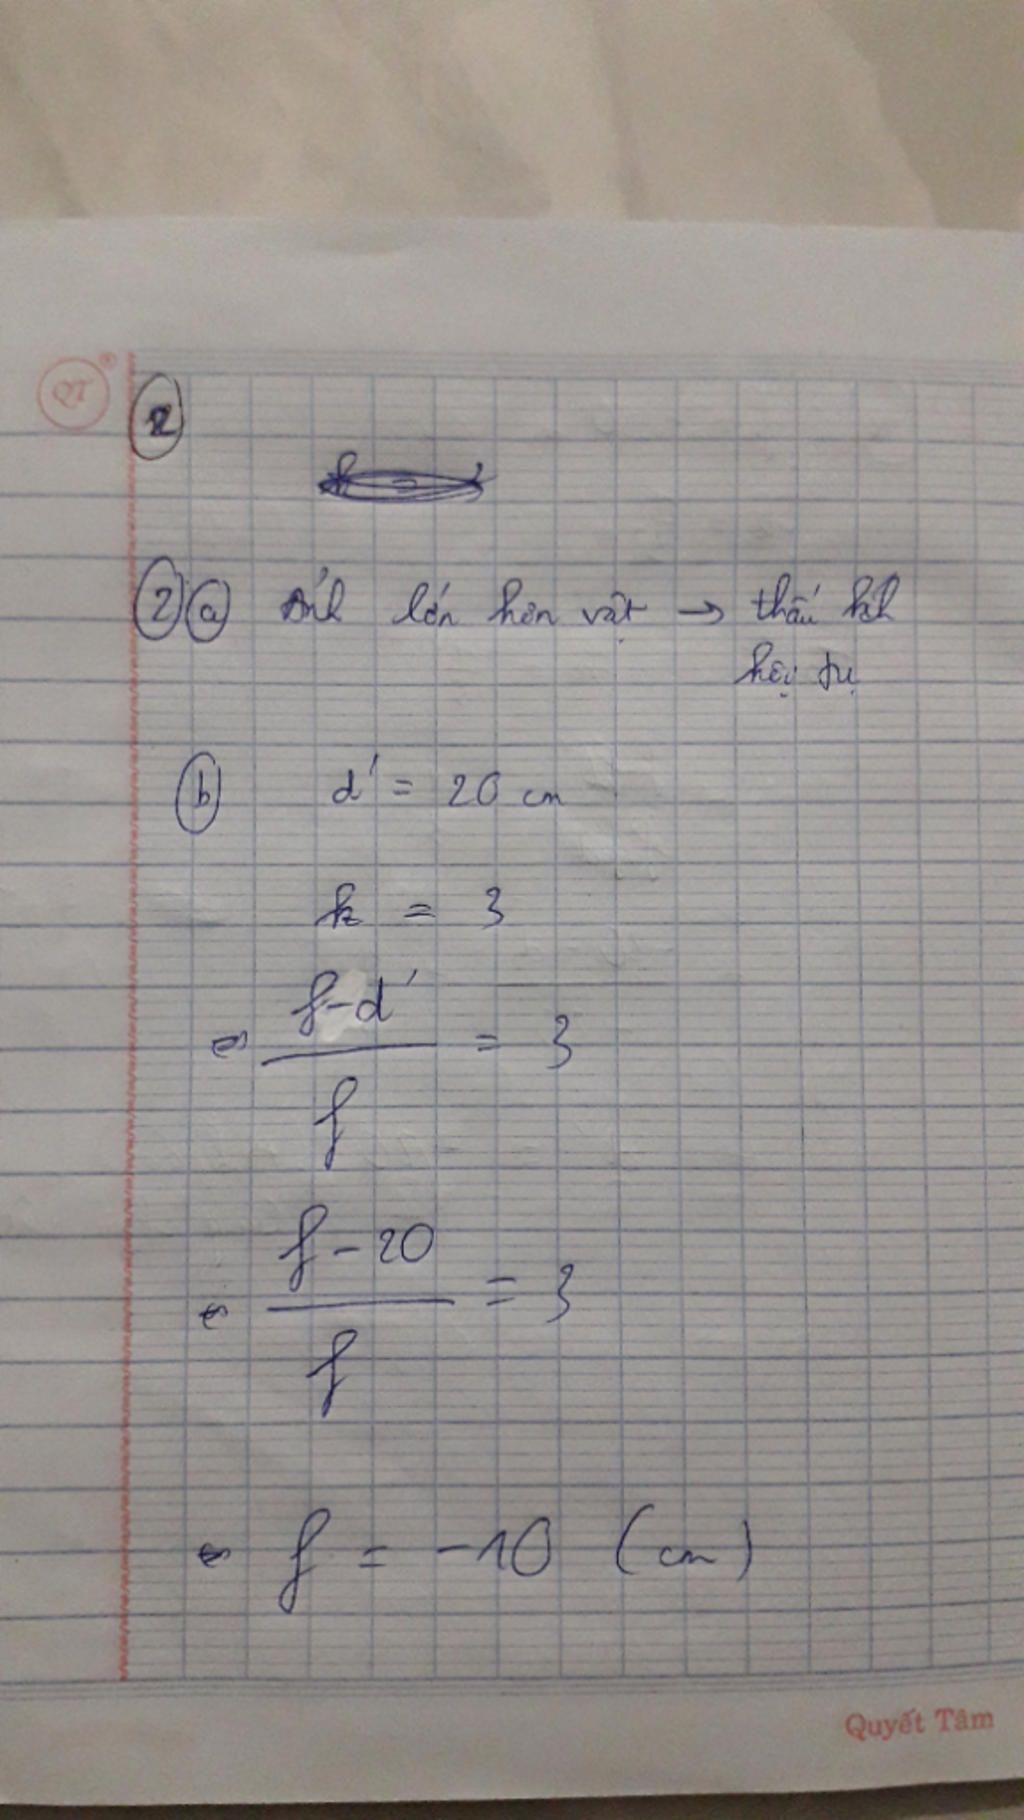 QT
2
2 a Ảnh lớn hơn vật → thấu kính
hội tụ
b d' = 20 cm
k = 3
⇔ f-d' / f = 3
⇔ f - 20 / f = 3
⇔ f = -10 (cm)
Quyết Tâm